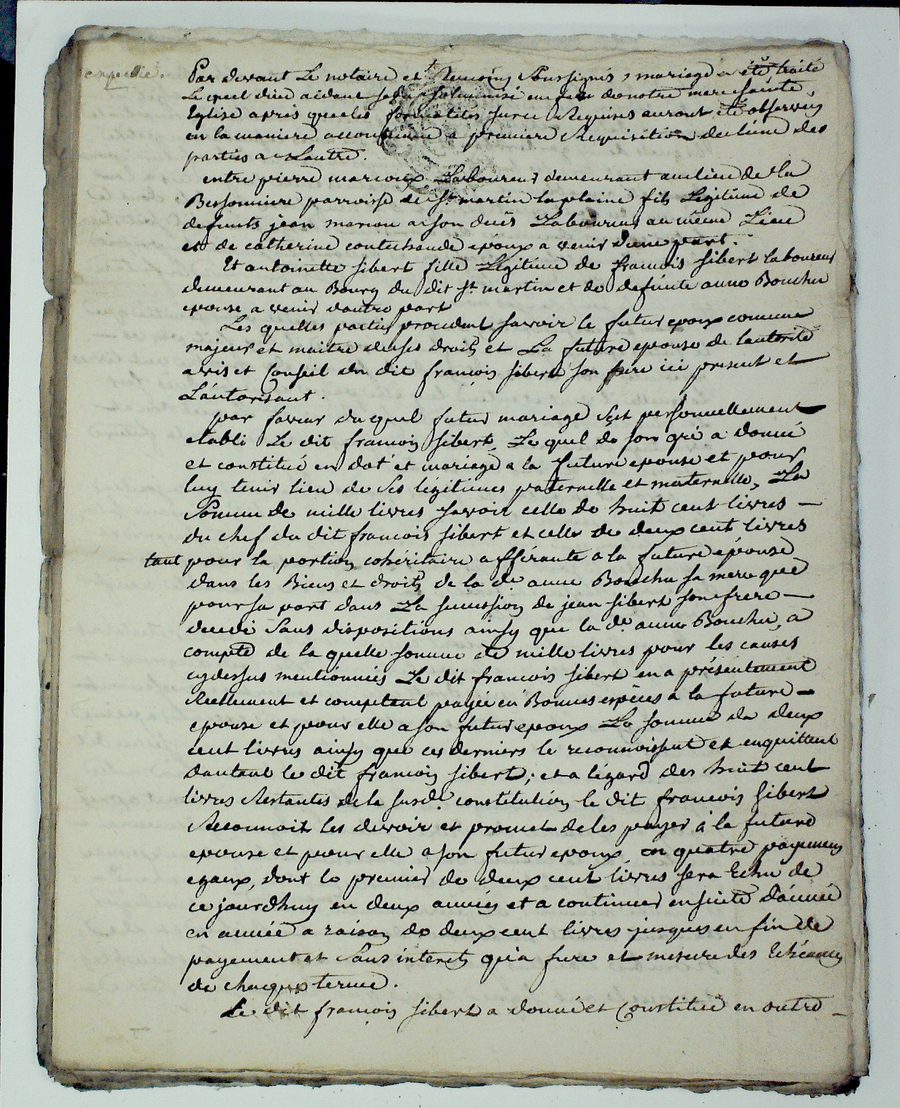 expedié.
Par devant Le notaire et temoins Soussignés, mariage a été traité
Le quel dieu aidant sera solemnisé en face de notre mere Sainte
Eglise apres que les formalites sur ce Requises auront été observées
en la maniere accoutumée a premiere Requisition de l'une des
parties a Lautre.
entre pierre marcoux Laboureur demeurant au lieu de la
Bessonniere parroisse de St. martin laplaine fils Legitime de
defunts jean marcou a son deces Laboureur au même Lieu
et de catherine coutechaude epoux a venir d'une part.
Et antoinette sibert fille Legitime de francois sibert laboureur
demeurant au Bourg du dit St. martin et de defunte anne Bouchu
epouse a venir dautre part
Les quelles parties procedent savoir le futur epoux comme
majeur et maitre de ses droits et La future epouse de lautorité
avis et Conseil du dit françois sibert son pere ici present et
L'autorisant.
par faveur du quel futur mariage s'est personnellement
etabli Le dit francois sibert, Le quel de son gré a donné
et constitué en dot et mariage a la future epouse et pour
luy tenir lieu de ses légitimes paternelle et maternelle, La
Somme de mille livres savoir celle de huit cent livres —
du chef du dit francois sibert et celle de deux cent livres
tant pour la portion cohéritaire afférante a la future epouse
dans les Biens et droits de la de. anne Bouchu sa mere que
pour sa part dans La succession de jean sibert son frere —
decedé Sans dispositions ainsy que la de. anne Bouchu, a
compte de la quelle somme de mille livres pour les causes
cydessus mentionnées Le dit francois sibert en a présentement
Reellement et comptant payée en Bonnes espèces à la future —
epouse et pour elle a son futur epoux La somme de deux
cent livres ainsy que ces derniers le reconnoissent et en quittent
dautant le dit francois sibert; et a légard des huit cent
livres Restantes de la susde. constitution le dit francois sibert
Reconnoit les devoir et promet de les payer à la future
epouse et pour elle a son futur epoux en quatre payemens
egaux, dont le premier de deux cent livres sera Echu de
ce jourdhuy en deux années et a continuer ensuite d'année
en année a raison de deux cent livres jusques en fin de
payement et Sans interets qu'a fure et mesure des Echéances
de chaque terme.
Le dit françois sibert a donné et Constitué en outre —